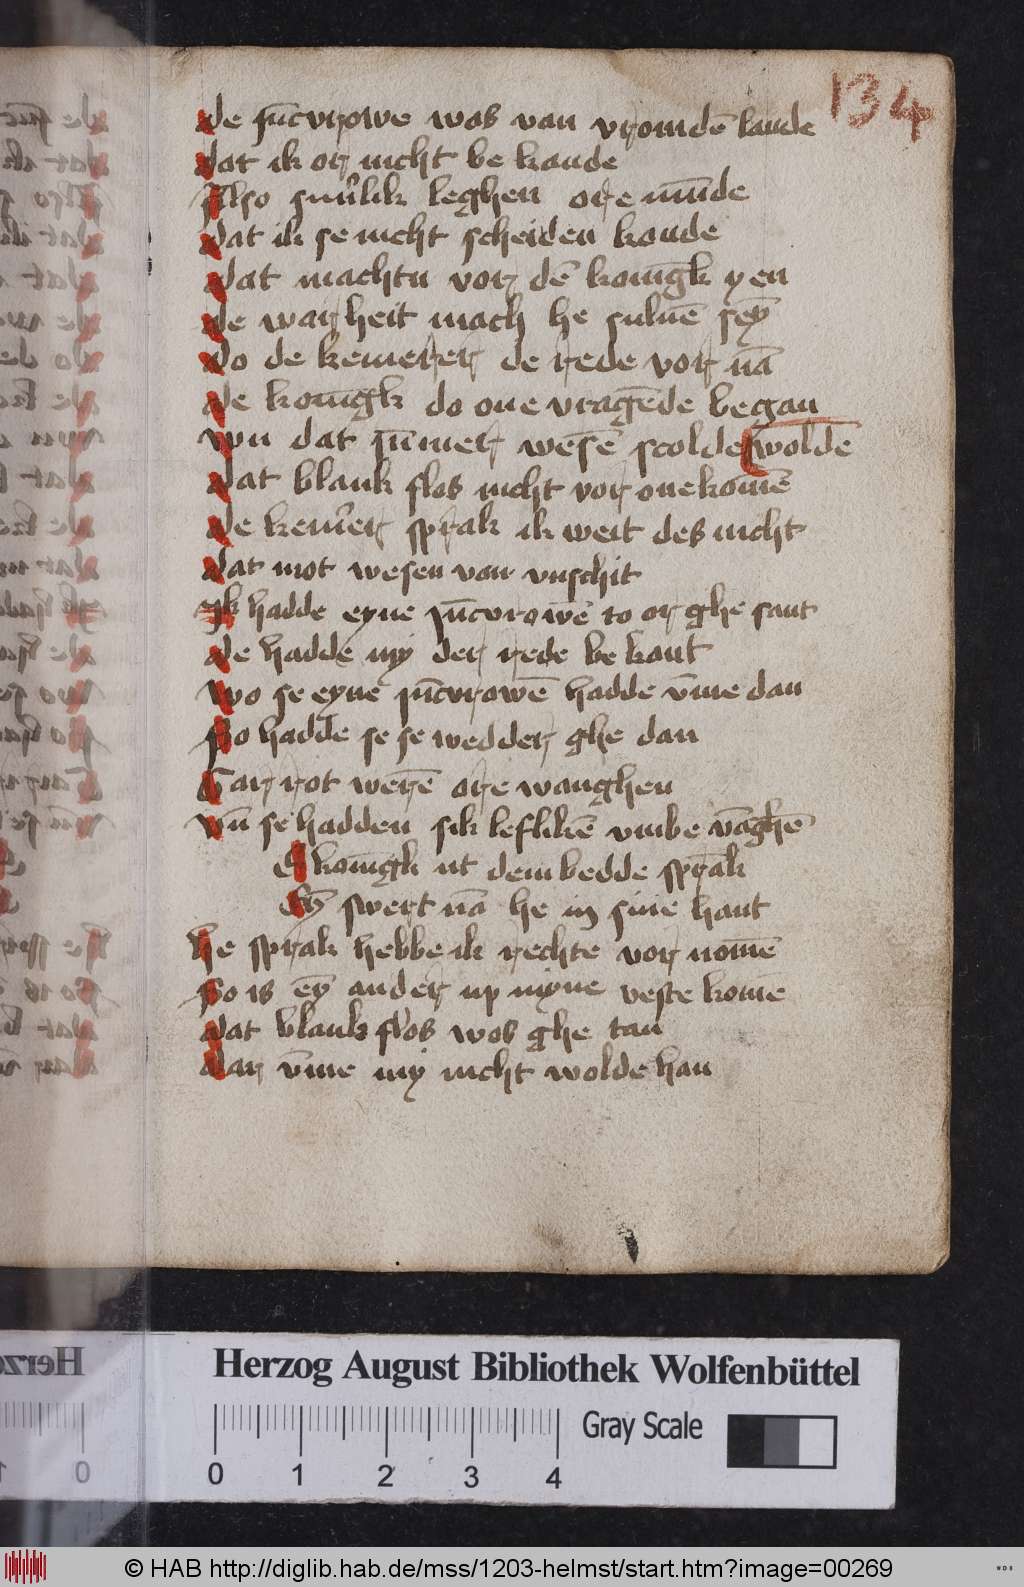 134
de jūcvrowe was van vromdē lande
dat ik or nicht be kande
Also sūūlik leghen ore mūde
dat ik se nicht scheiden konde
dat machtu vor dē konīgk yen
de warheit mach he suluē sey̅
do de kemerer de rede vor nā
de konīgk do one vragēde began
wu dat jūmer wesē scolde wolde
dat blank flos nicht vor one komē
de kemer̄ sprak ik weit des nicht
dat mot wesen van vnschit
Ik hadde eyne jūcvrowē to or ghe sant
de hadde my der rede be kant
wo se eyne jūcvrowē hadde v̄me dan
So hadde se se wedder ghe dan
Gar rot werē ore wanghen
vn̄ se hadden sik leflikē vmbe vāghē
De konīgk ut dem bedde sprak
Ey̅ swert nā he in sine hant
he sprak hebbe ik rechte vor nomē
So is ey̅ ander up myne veste komē
dat blank flos was ghe tan
dar v̄me my nicht wolde han
Herzog August Bibliothek Wolfenbüttel
0 1 2 3 4
Gray Scale
© HAB http://diglib.hab.de/mss/1203-helmst/start.htm?image=00269